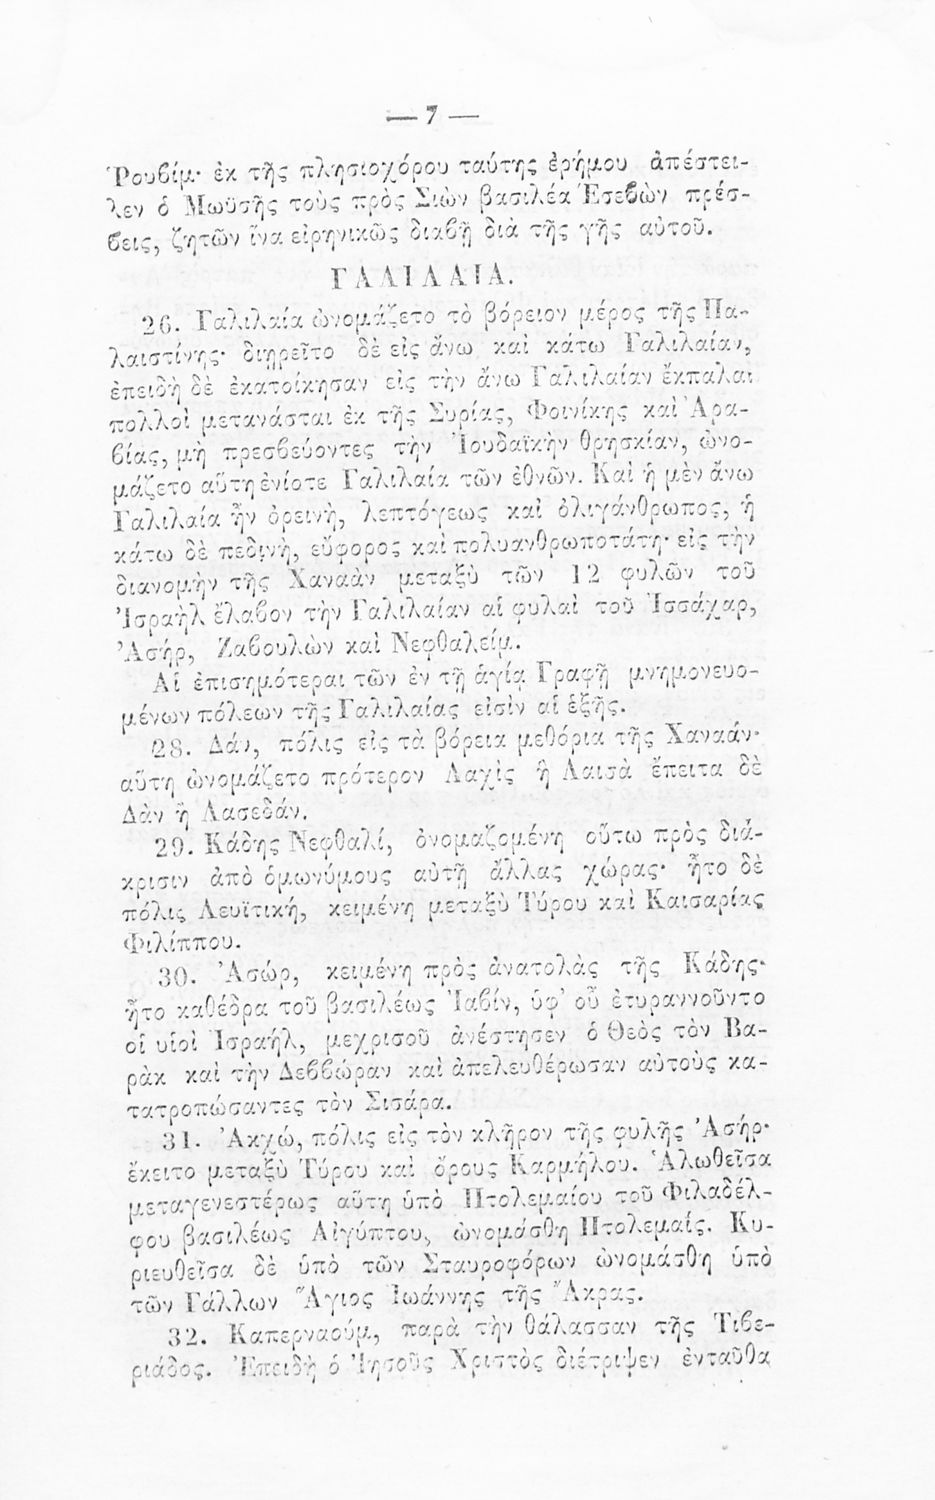 — 7 —
Ῥουβίμ· ἐκ τῆς πλησιοχόρου ταύτης ἐρήμου ἀπέστει-
λεν ὁ Μωϋσῆς τοὺς πρὸς Σιὼν βασιλέα Ἐσεβὼν πρέσ-
βεις, ζητῶν ἵνα εἰρηνικῶς διαβῇ διὰ τῆς γῆς αὐτοῦ.
ΓΑΛΙΛΑΙΑ.
26. Γαλιλαία ὠνομάζετο τὸ βόρειον μέρος τῆς Πα-
λαιστίνης· διῃρεῖτο δὲ εἰς ἄνω καὶ κάτω Γαλιλαίαν,
ἐπειδὴ δὲ ἐκατοίκησαν εἰς τὴν ἄνω Γαλιλαίαν ἔκπαλαι
πολλοὶ μετανάσται ἐκ τῆς Συρίας, Φοινίκης καὶ Ἀρα-
βίας, μὴ πρεσβεύοντες τὴν Ἰουδαϊκὴν θρησκίαν, ὠνο-
μάζετο αὕτη ἐνίοτε Γαλιλαία τῶν ἐθνῶν. Καὶ ἡ μὲν ἄνω
Γαλιλαία ἦν ὀρεινὴ, λεπτόγεως καὶ ὀλιγάνθρωπος, ἡ
κάτω δὲ πεδινὴ, εὔφορος καὶ πολυανθρωποτάτη· εἰς τὴν
διανομὴν τῆς Χαναὰν μεταξὺ τῶν 12 φυλῶν τοῦ
Ἰσραὴλ ἔλαβον τὴν Γαλιλαίαν αἱ φυλαὶ τοῦ Ἰσσάχαρ,
Ἀσήρ, Ζαβουλὼν καὶ Νεφθαλείμ.
Αἱ ἐπισημότεραι τῶν ἐν τῇ ἁγίᾳ Γραφῇ μνημονευο-
μένων πόλεων τῆς Γαλιλαίας εἰσὶν αἱ ἑξῆς.
28. Δάν, πόλις εἰς τὰ βόρεια μεθόρια τῆς Χαναάν·
αὕτη ὠνομάζετο πρότερον Λαχὶς ἢ Λαισὰ ἔπειτα δὲ
Δὰν ἢ Λασεδάν.
29. Κάδης Νεφθαλί, ὀνομαζομένη οὕτω πρὸς διά-
κρισιν ἀπὸ ὁμωνύμους αὐτῇ ἄλλας χώρας· ἦτο δὲ
πόλις Λευϊτική, κειμένη μεταξὺ Τύρου καὶ Καισαρίας
Φιλίππου.
30. Ἀσώρ, κειμένη πρὸς ἀνατολὰς τῆς Κάδης·
ἦτο καθέδρα τοῦ βασιλέως Ἰαβίν, ὑφ’ οὗ ἐτυραννοῦντο
οἱ υἱοὶ Ἰσραήλ, μεχρισοῦ ἀνέστησεν ὁ Θεὸς τὸν Βα-
ρὰκ καὶ τὴν Δεββώραν καὶ ἀπελευθέρωσαν αὐτοὺς κα-
τατροπώσαντες τὸν Σισάρα.
31. Ἀκχώ, πόλις εἰς τὸν κλῆρον τῆς φυλῆς Ἀσήρ·
ἔκειτο μεταξὺ Τύρου καὶ ὄρους Καρμήλου. Ἁλωθεῖσα
μεταγενεστέρως αὕτη ὑπὸ Πτολεμαίου τοῦ Φιλαδέλ-
φου βασιλέως Αἰγύπτου, ὠνομάσθη Πτολεμαΐς. Κυ-
ριευθεῖσα δὲ ὑπὸ τῶν Σταυροφόρων ὠνομάσθη ὑπὸ
τῶν Γάλλων Ἅγιος Ἰωάννης τῆς Ἄκρας.
32. Καπερναούμ, παρὰ τὴν θάλασσαν τῆς Τιβε-
ριάδος. Ἐπειδὴ ὁ Ἰησοῦς Χριστὸς διέτριψεν ἐνταῦθα